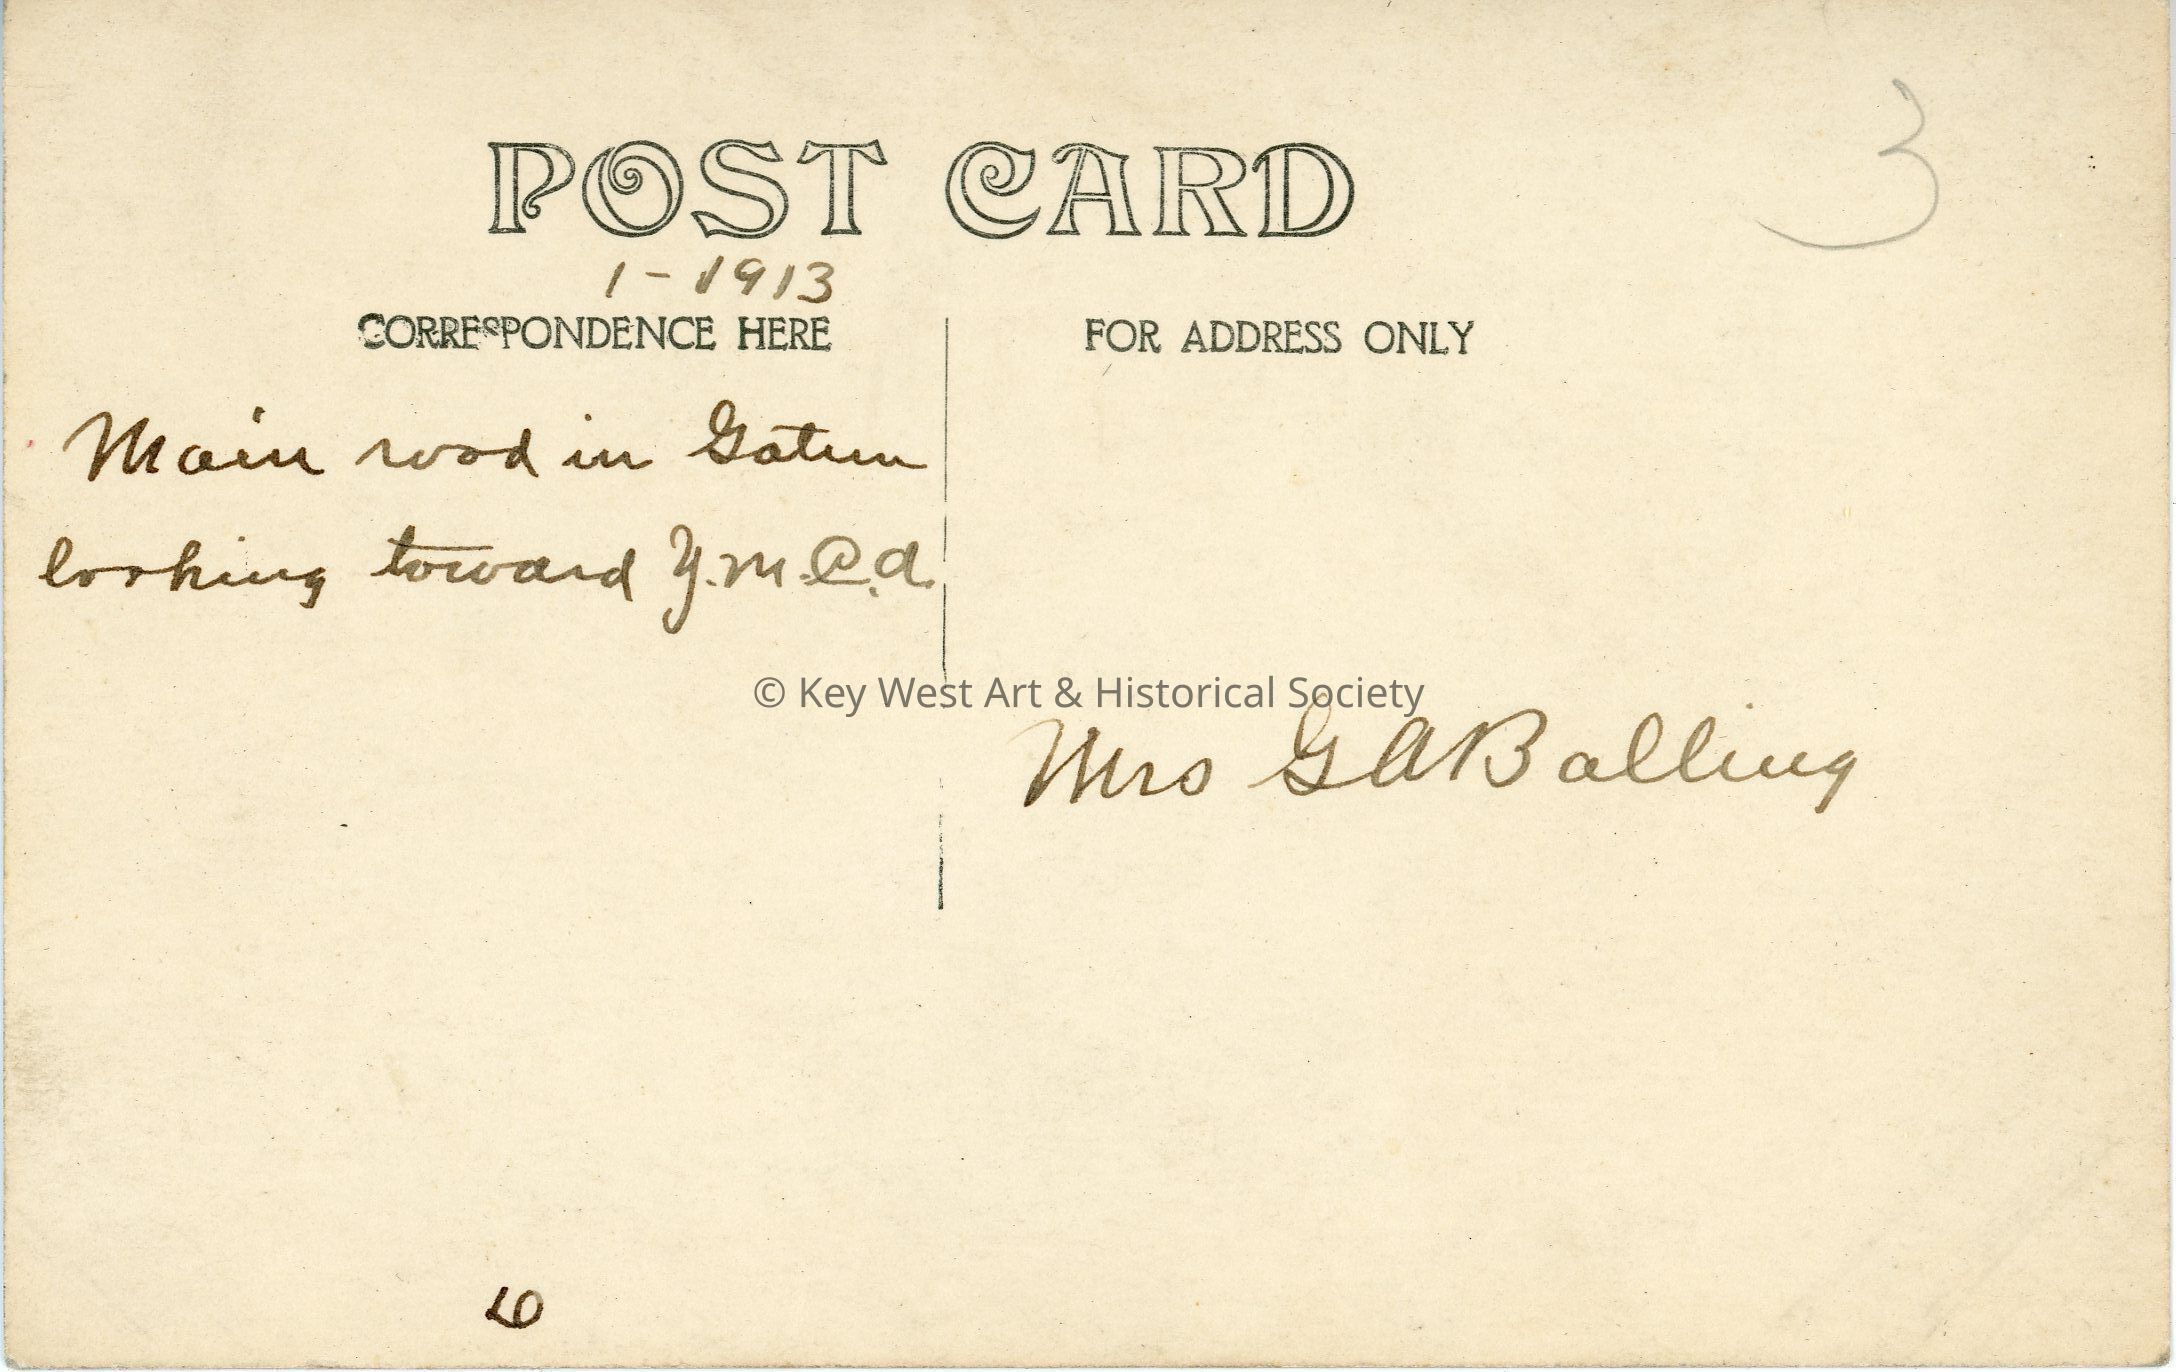 3
POST CARD
1-1913
CORRESPONDENCE HERE
FOR ADDRESS ONLY
Main road in Gatun
looking toward Y.M.C.A.
© Key West Art & Historical Society
Mrs G A Balling